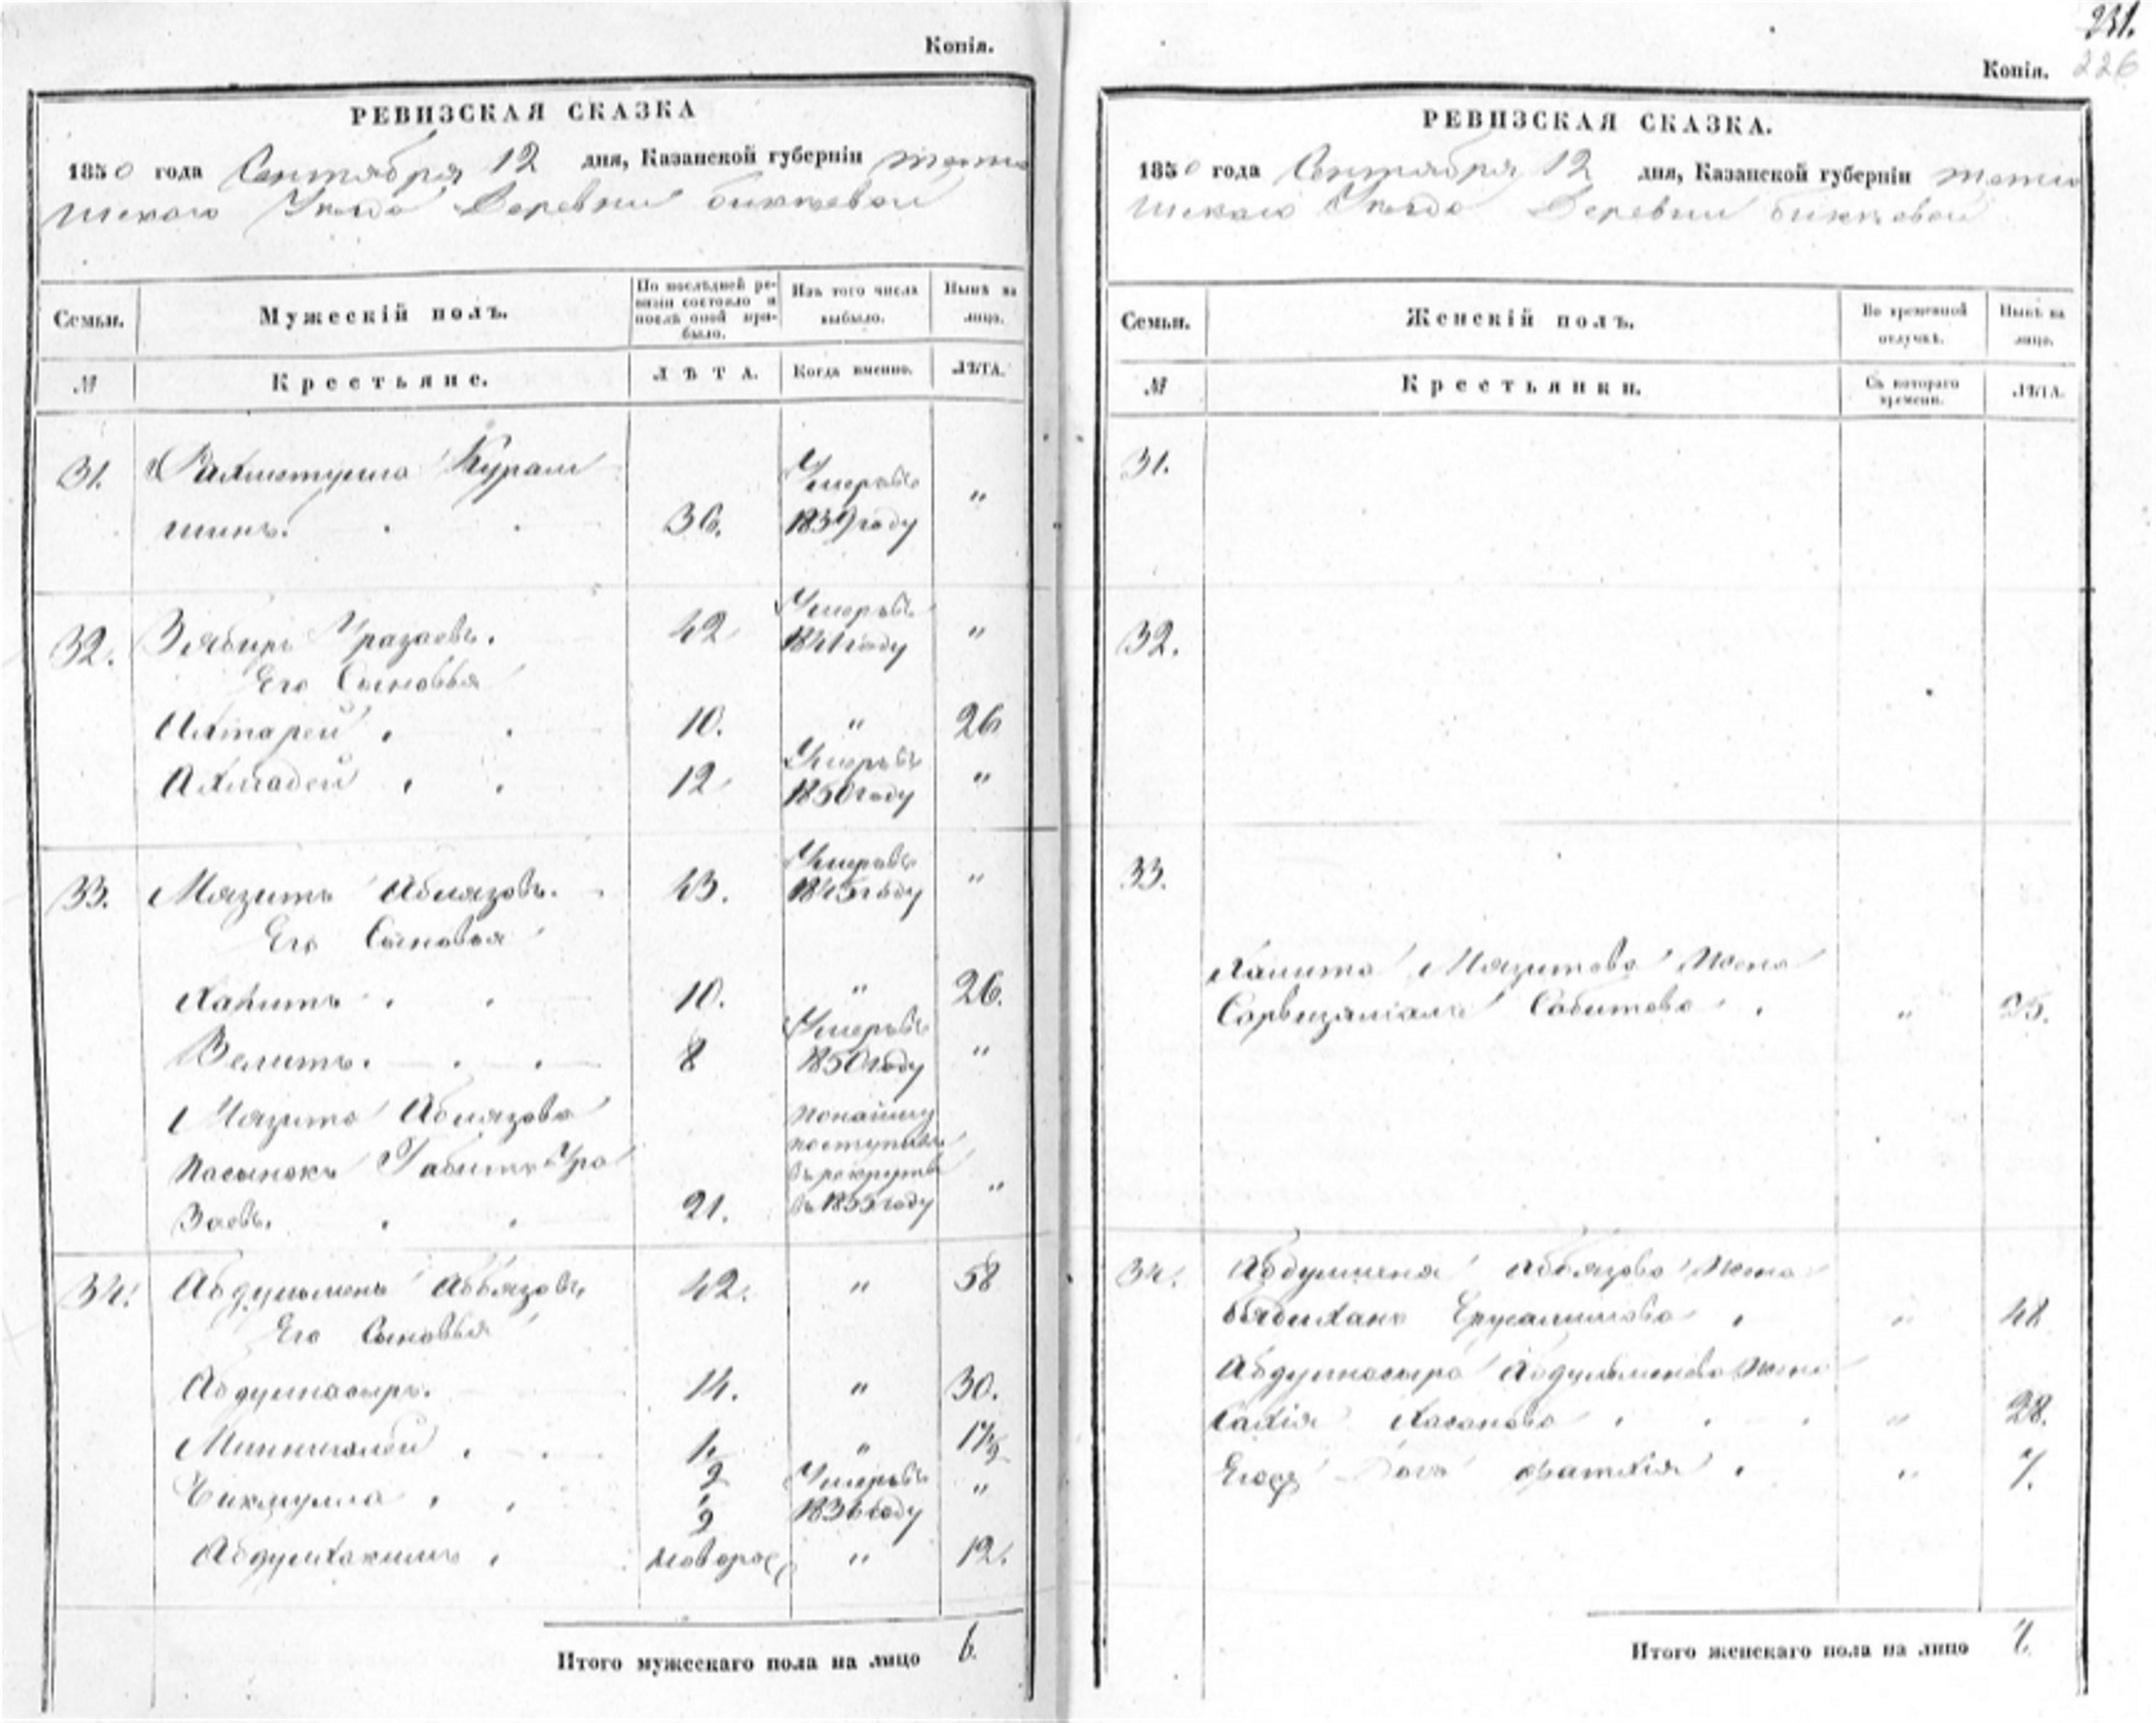 Копія.
РЕВИЗСКАЯ СКАЗКА
1850 года Сентября 12 дня, Казанской губерніи тетю
шскаго Уезда Деревни бикеевой
Семьи.
Мужескій полъ.
По послѣдней ре-
визіи состояло и
послѣ оной при-
было.
Изъ того числа
выбыло.
Нынѣ на
лицо.
№
Крестьяне.
ЛѢТА.
Когда именно.
ЛѢТА.
31. Рахметулла Курам Умеръ въ
шинъ. 36. 1839 году "
32. Зябиръ Уразаевъ. 42 Умеръ въ 1841 году "
Его Сыновья
10. " 26
Ахмадей 12 Умеръ въ 1850 году "
33. Мязитъ Аблязовъ. 43. Умеръ въ 1845 году "
Его Сыновья
Хамитъ 10. " 26.
Велитъ. 8 Умеръ въ 1850 году "
Мязита Аблязова
пасынокъ Габитъ Ура
заевъ. 21. по найму поступилъ въ рекруты въ 1835 году "
34. Абдулменъ Аблязовъ 42. " 58
Его Сыновья
Абдулнасыръ. 14. " 30.
1/2 " 17 1/2
1/2 Умеръ въ 1836 году "
Абдулхакимъ новорож " 12.
Итого мужескаго пола на лицо 6.
231.
226
Копія.
РЕВИЗСКАЯ СКАЗКА.
1850 года Сентября 12 дня, Казанской губерніи тетю
шскаго Уезда Деревни бикеевой
Семьи.
Женскій полъ.
Во временной
отлучкѣ.
Нынѣ на
лицо.
№
Крестьянки.
Съ котораго
времени.
ЛѢТА.
31.
32.
33.
Хамита Мязитова жена
Сабитова " 25.
34. Абдулменя Аблязова жена
Бядихана " 48
Абдулнасыра Абдулменева жена
Салія Хасанова " 28.
Его дочь Фатхія " 7.
Итого женскаго пола на лицо 4.